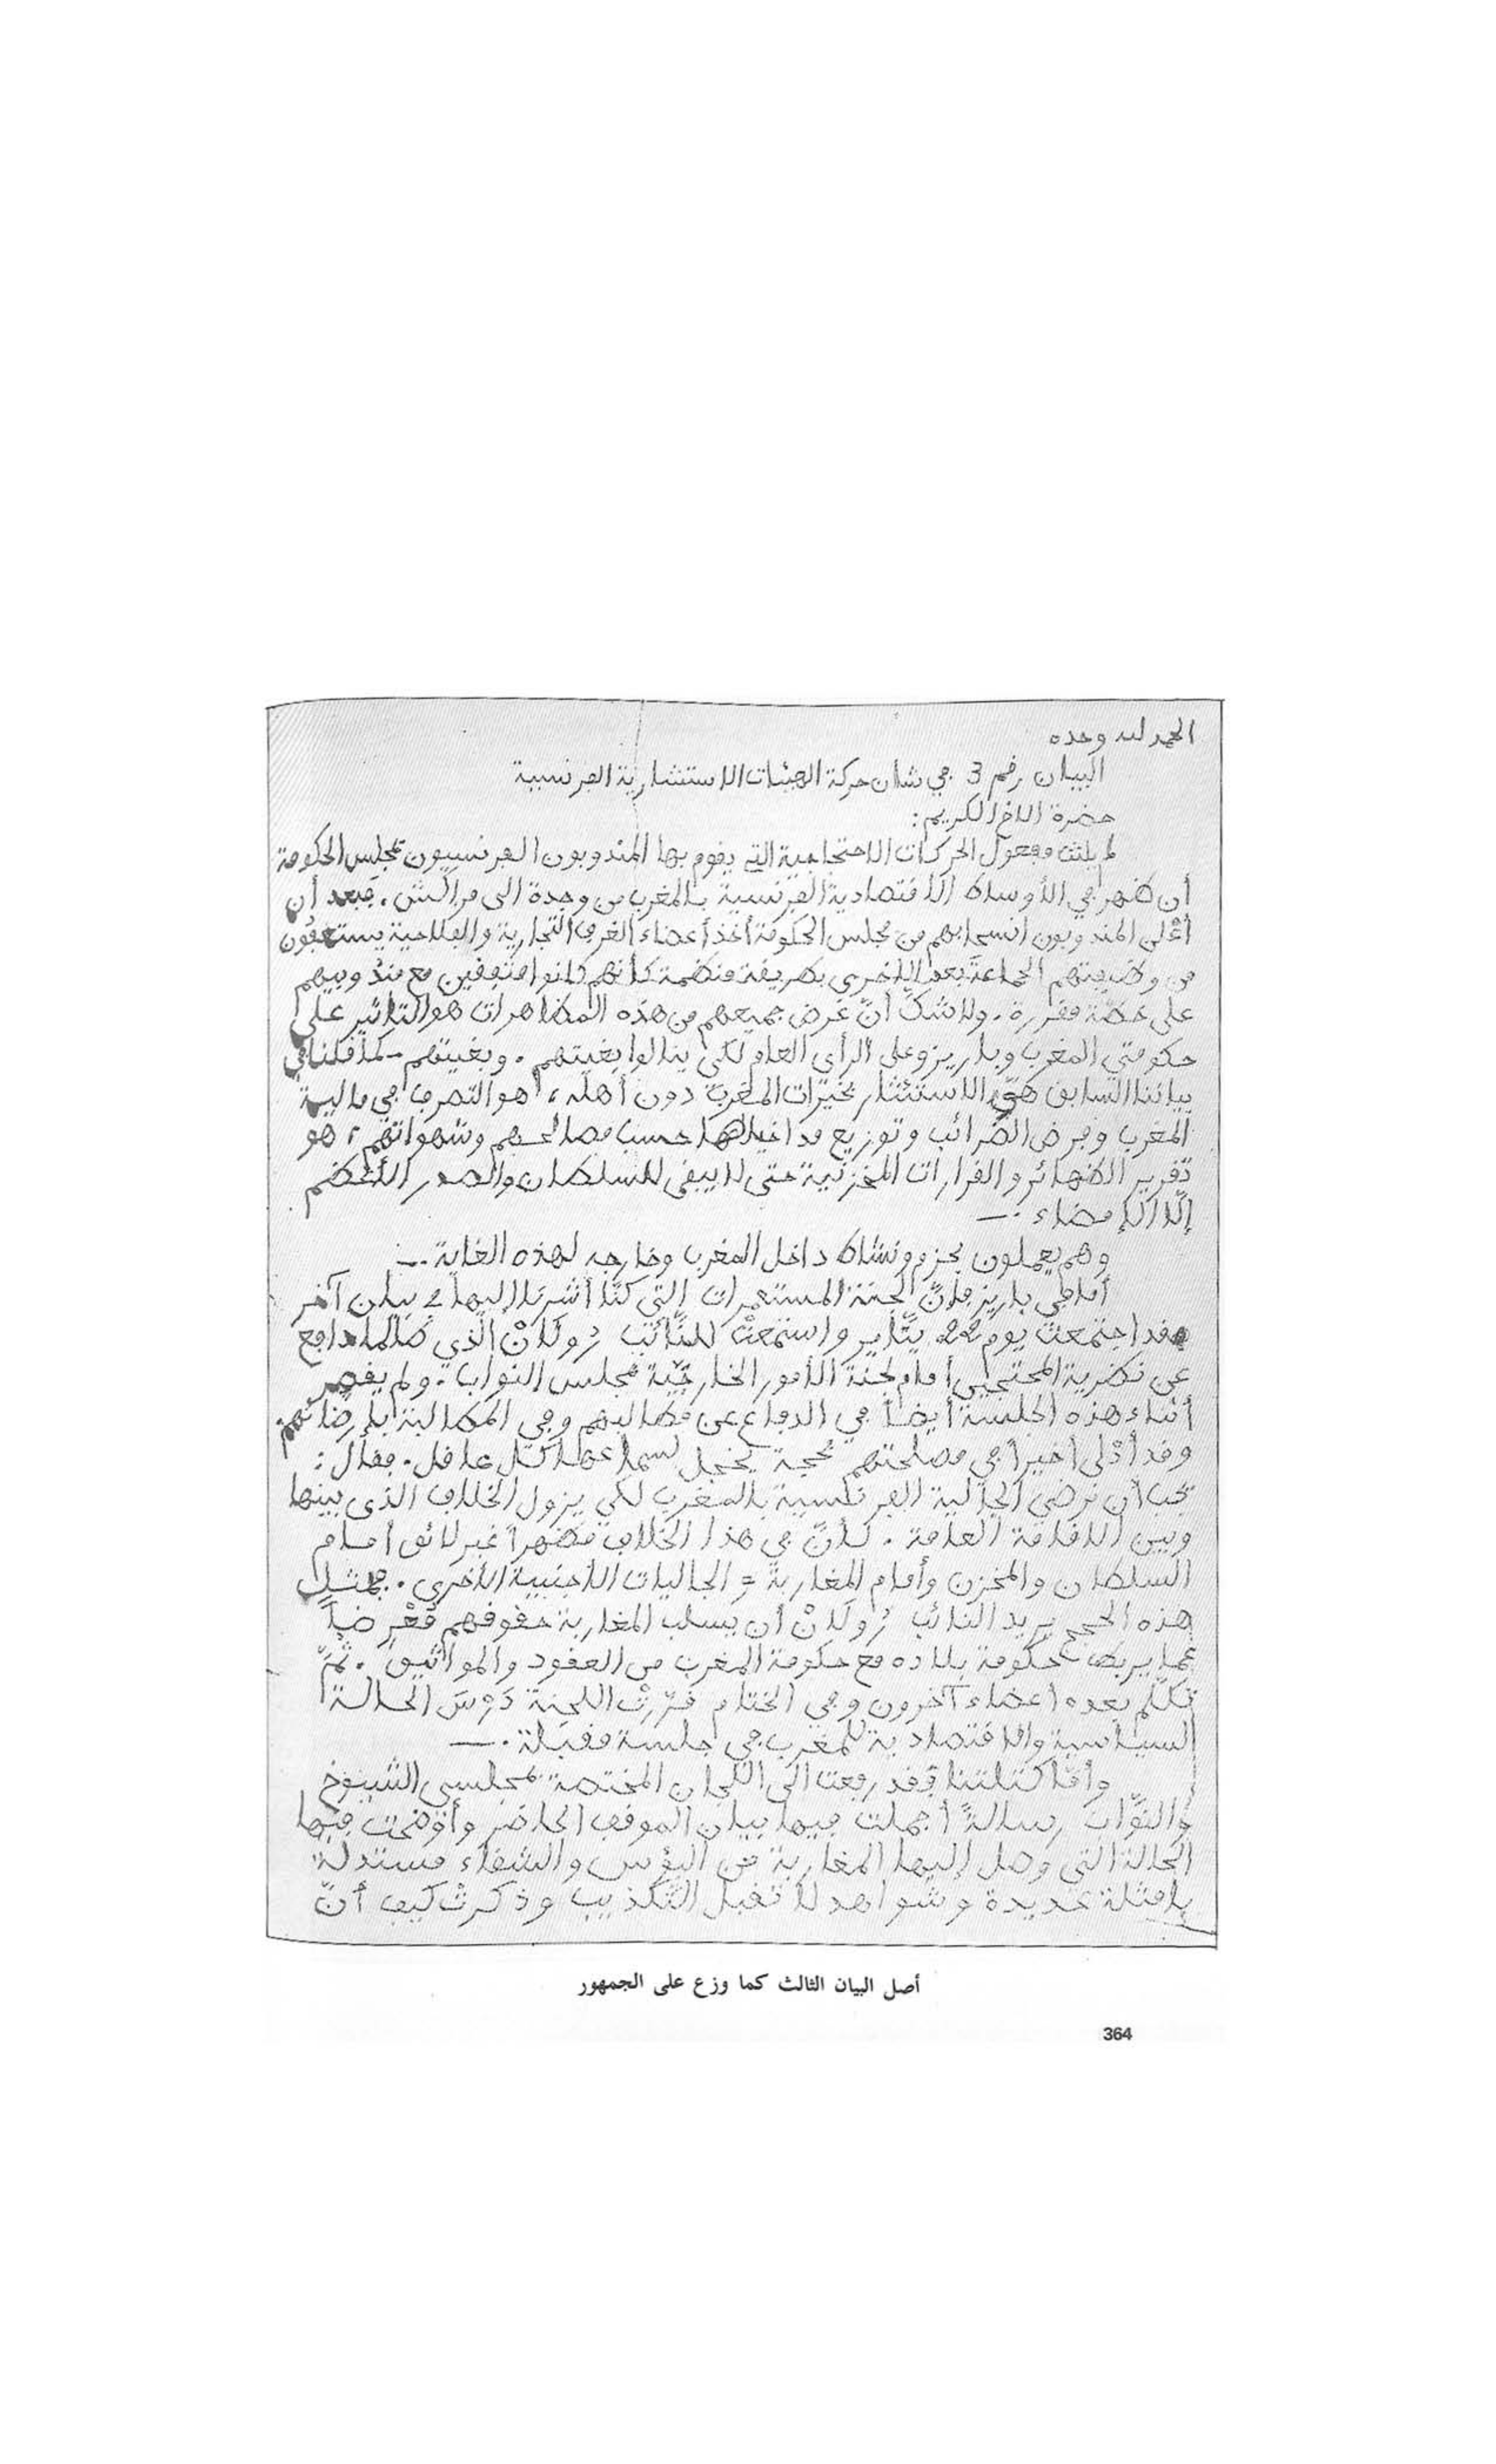 الحمد لله وحده
البيان رقم 3 في شان حركة الهيئات الاستشارية الفرنسية
حضرة الاخ الكريم:
لم يلبث مفعول الحركات الاحتجاجية التي يقوم بها المندوبون الفرنسيون بمجلس الحكومة
أن ظهر في الأوساط الاقتصادية الفرنسية بالمغرب من وجدة الى مراكش. فبعد أن
أعلن المندوبون انسحابهم من مجلس الحكومة أخذ أعضاء الغرف التجارية والفلاحية يستعفون
من وظيفتهم الجماعة بعد الاخرى بطريقة منظمة كأنهم كانوا متفقين مع مندوبيهم
على خطة مقررة. ولا شك أنّ غرض جميعهم من هذه المظاهرات هو التاثير على
حكومتي المغرب وباريز وعلى الرأى العام لكى ينالوا بغيتهم. وبغيتهم - كما قلنا في
بياننا السابق هي الاستئثار بخيرات المغرب دون أهله، هو التصرف في مالية
المغرب وفرض الضرائب وتوزيع مداخيلها حسب مصالحهم وشهواتهم، هو
تقرير الظهائر والقرارات المخزنية حتى لا يبقى للسلطان والصدر الأعظم
إلّا الإمضاء .-
وهم يعملون بحزم ونشاط داخل المغرب وخارجه لهذه الغاية .-
أما في باريز فإنّ لجنة المستعمرات التي كنّا أشرنا إليها في بيان آخر
فقد اجتمعت يوم 22 ينّاير واستمعتْ للنّائب رُولَانْ الذي طالما دافع
عن نظرية المحتجين أمام لجنة الأمور الخارجيّة بمجلس النواب. ولم يقصر
أثناء هذه الجلسة أيضاً في الدفاع عن مطالبهم وفي المطالبة بإرضائهم
وقد أدْلى اخيراً في مصلحتهم بحجة يخجل لسماعها كل عاقل. فقال:
يجب أن نرضي الجالية الفرنسية بالمغرب لكي يزول الخلاف الذى بينها
وبين الاقامة العامة. كأنّ في هذا الخلاف مظهراً غير لائق أمام
السلطان والمخزن وأمام المغاربة و الجاليات الأجنبية الأخرى. بمثل
هذه الحجج يريد النائب رُولَانْ أن يسلب المغاربة حقوقهم مُعْرضاً
عما يربط حكومة بلاده مع حكومة المغرب من العقود والمواثيق. ثمّ
تكلّم بعده اعضاء آخرون وفي الختام قرّرتْ اللجنة دَرْسَ الحالة
السياسية والاقتصادية للمغرب في جلسة مقبلة .-
وأمّا كتلتنا فقد رفعت الى اللجان المختصة بمجلسي الشيوخ
والنوّاب رسالةً أجملت فيها بيان الموقف الحاضر وأوضحت فيها
الحالة التي وصل إليها المغاربة من البؤس والشقاء مستدلة
بامثلة عديدة وشواهد لا تقبل التكذيب وذكرتْ كيف أنّ
أصل البيان الثالث كما وزع على الجمهور
364